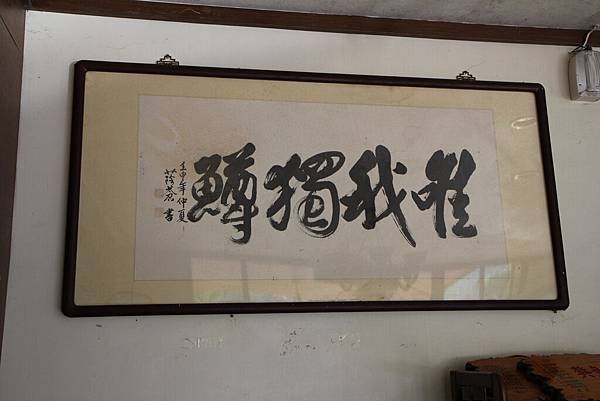 唯我獨鱒
壬申年仲夏
書